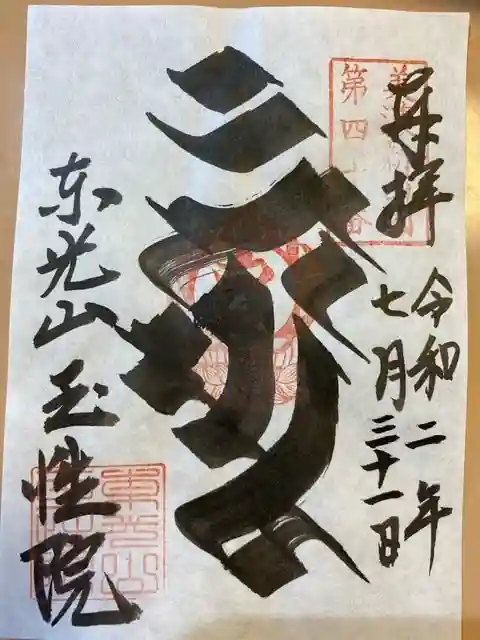 奉拝
令和二年
七月三十一日
東光山
玉性院
第四十